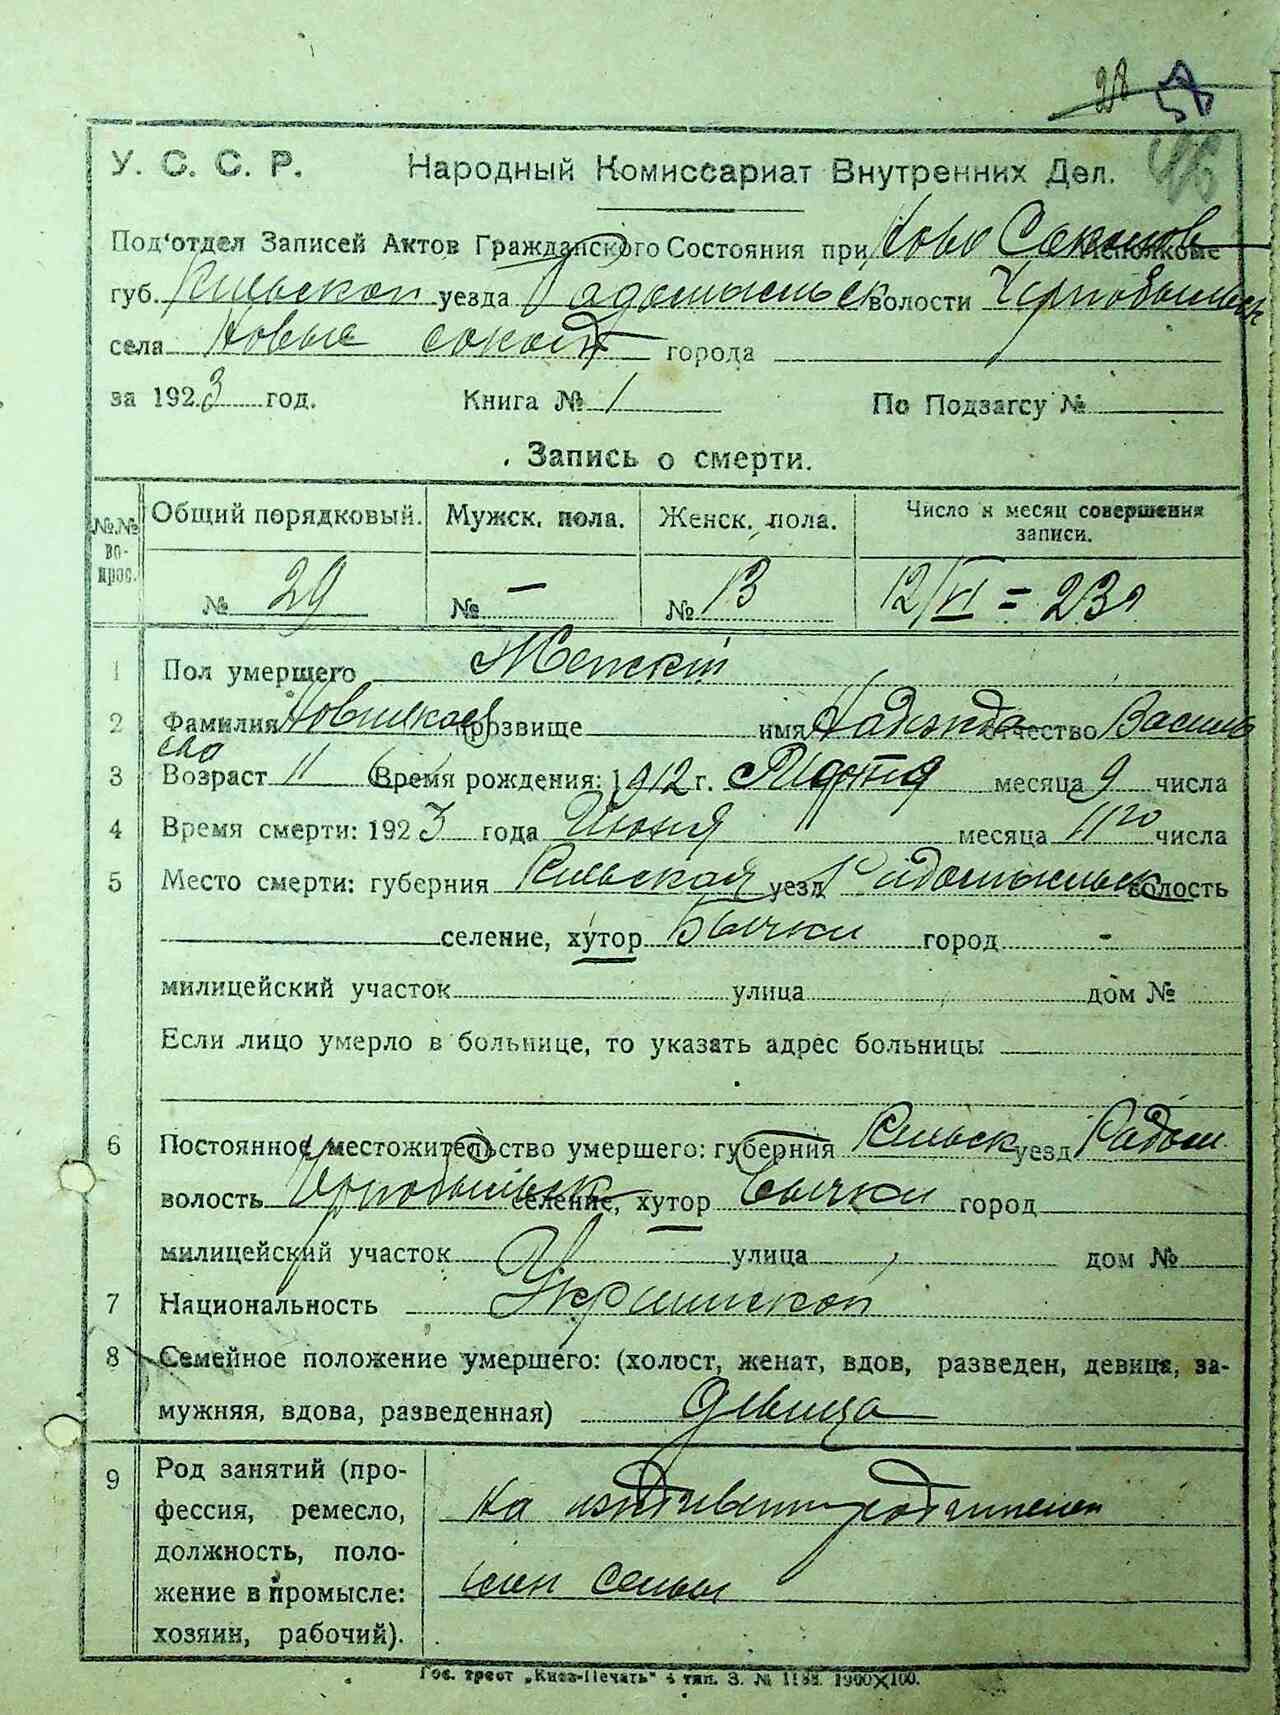 28 58
96
У. С. С. Р. Народный Комиссариат Внутренних Дел.
Под'отдел Записей Актов Гражданского Состояния при Ново Соколов исполкоме
губ. Киевской уезда Радомысльск волости Чернобыльск
села Новые соколы города
за 1923 год. Книга № 1 По Подзагсу №
Запись о смерти.
№№ вопрос. Общий порядковый. Мужск. пола. Женск. пола. Число и месяц совершения записи.
№ 29 № — № 13 12/VI = 23
1 Пол умершего Женский
2 Фамилия прозвище имя Надежда отчество Василь
ева
3 Возраст 11 Время рождения: 1912 г. Марта месяца 9 числа
4 Время смерти: 1923 года Июня месяца 11го числа
5 Место смерти: губерния Киевская уезд Радомысльск волость
селение, хутор Бычки город -
милицейский участок улица дом №
Если лицо умерло в больнице, то указать адрес больницы
6 Постоянное местожительство умершего: губерния Киевск уезд Радом
волость Чернобыльск селение, хутор Бычки город
милицейский участок улица дом №
7 Национальность Украинской
8 Семейное положение умершего: (холост, женат, вдов, разведен, девица, за-
мужняя, вдова, разведенная) девица
9 Род занятий (про-
фессия, ремесло, на иждивении родителей
должность, поло-
жение в промысле: член семьи
хозяин, рабочий).
Гос. трест „Киев-Печать" 4 тип. З. № 1188. 1900×100.